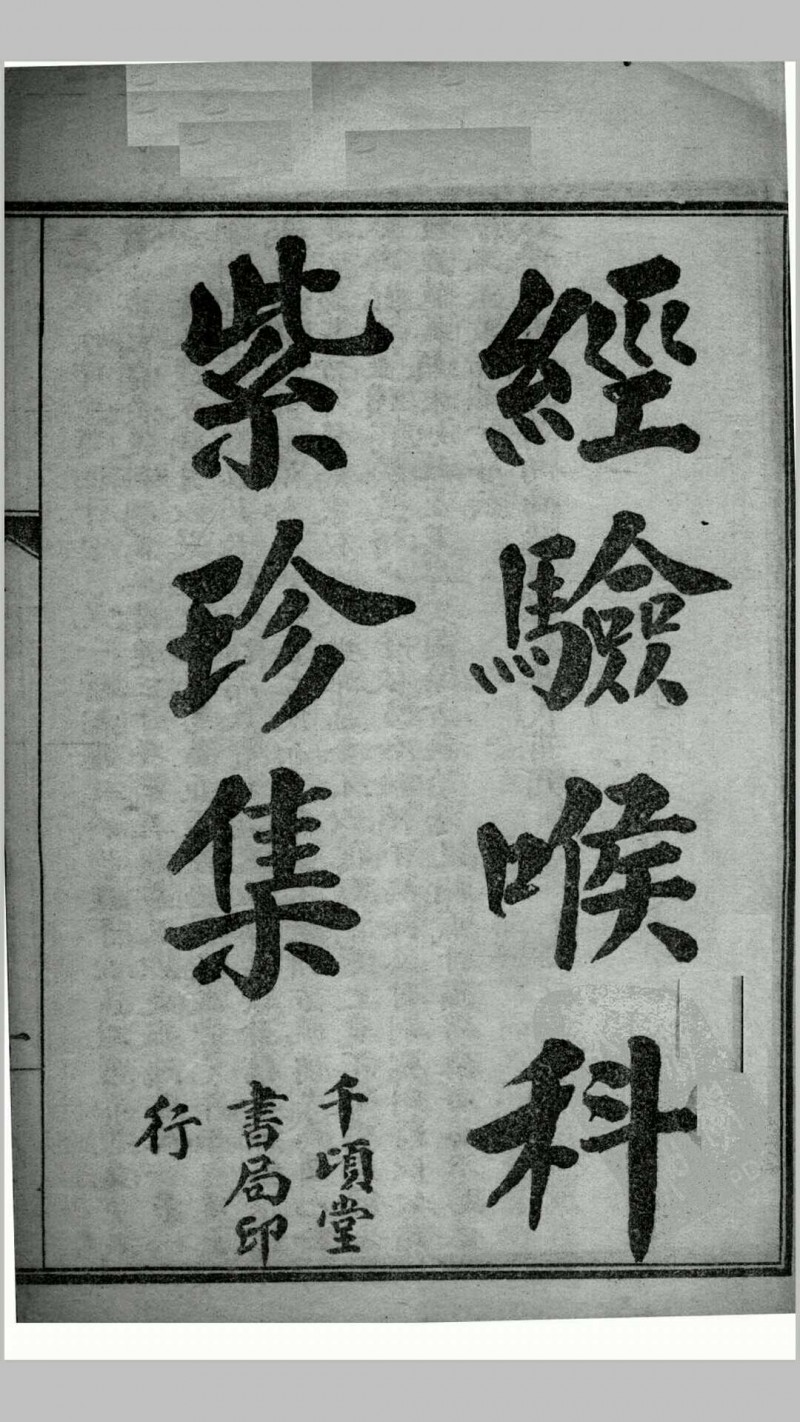 經驗喉科
紫珍集
千頃堂
書局印
行